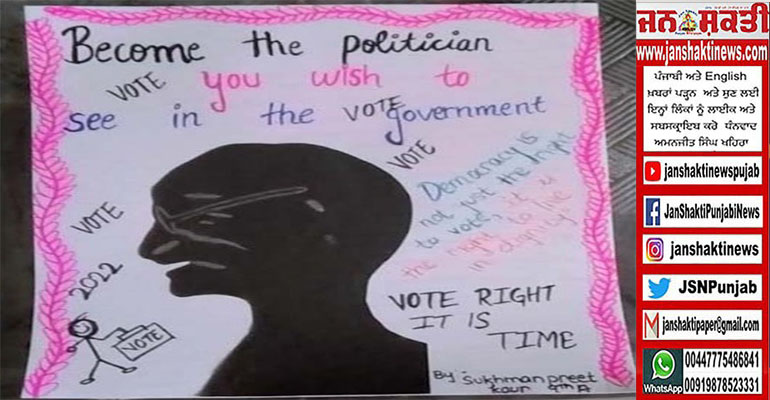 Become the politician
VOTE you wish to
see in the VOTE government
VOTE
Democracy is
not just the right
to vote, it is
the right to live
in dignity
VOTE
2022
VOTE
VOTE RIGHT
IT IS
TIME
By Sukhmanpreet
Kaur 9th A
ਜਨ ਸ਼ਕਤੀ
www.janshaktinews.com
ਪੰਜਾਬੀ ਅਤੇ English
ਖ਼ਬਰਾਂ ਪੜ੍ਹਨ ਅਤੇ ਸੁਣ ਲਈ
ਇਨ੍ਹਾਂ ਲਿੰਕਾਂ ਨੂੰ ਲਾਈਕ ਅਤੇ
ਸਬਸਕ੍ਰਾਇਬ ਕਰੋ ਧੰਨਵਾਦ
ਅਮਨਜੀਤ ਸਿੰਘ ਖਹਿਰਾ
janshaktinewspujab
JanShaktiPunjabiNews
janshaktinews
JSNPunjab
janshaktipaper@gmail.com
00447775486841
WhatsApp 00919878523331